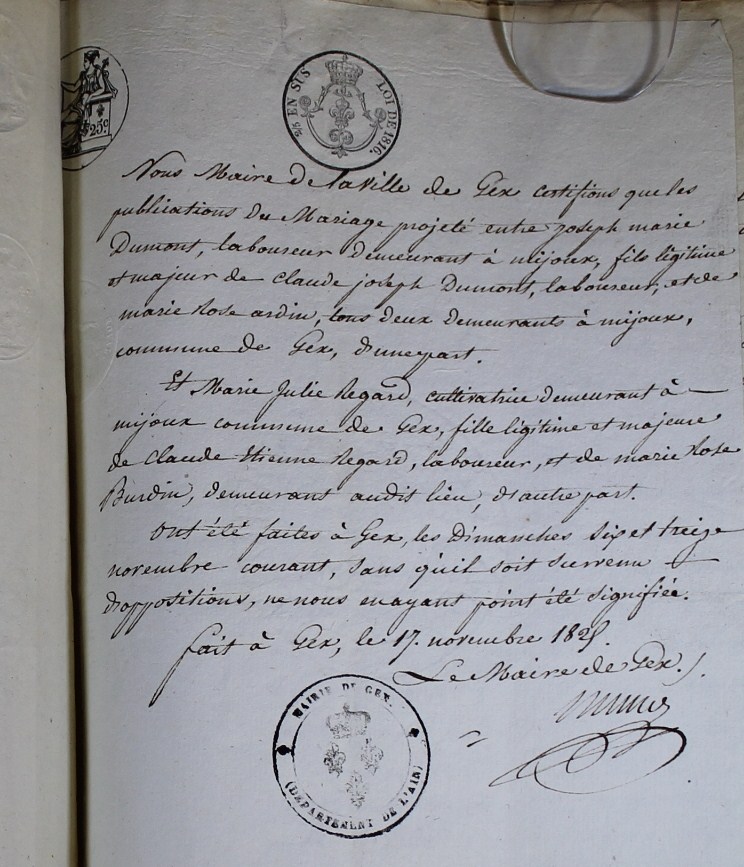 25c
2/5 EN SUS LOI DE 1816.
Nous Maire de la ville de Gex certifions que les
publications du Mariage projeté entre joseph marie
Dumont, laboureur demeurant à mijoux, fils légitime
et majeur de claude joseph Dumont, laboureur, et de
marie Rose ardin, tous deux demeurants à mijoux,
commune de Gex, d'une part.
Et Marie Julie Regard, cultivatrice demeurant à
mijoux commune de Gex, fille légitime et majeure
de claude Etienne Regard, laboureur, et de marie Rose
Burdin, demeurant audit lieu, d'autre part.
Ont été faites à Gex, les dimanches six et treize
novembre courant, sans qu'il soit survenu
d'oppositions, ne nous en ayant point été signifiée.
fait à Gex, le 17. novembre 1825.
Le Maire de Gex.
MAIRIE DE GEX.
(DEPARTEMENT DE L'AIN)